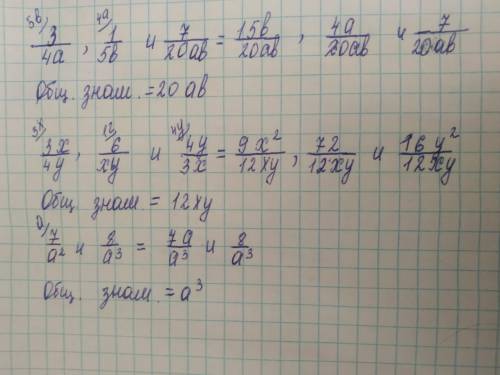 5в) 3/4a , 4a) 1/5в и 7/20ав = 15в/20ав , 4a/20ав и 7/20ав
Общ. знам. = 20 ав
3x) 3x/4y , 12) 6/xy и 4y) 4y/3x = 9x²/12xy , 72/12xy и 16y²/12xy
Общ. знам = 12xy
a) 7/a² и 8/a³ = 7a/a³ и 8/a³
Общ. знам. = a³